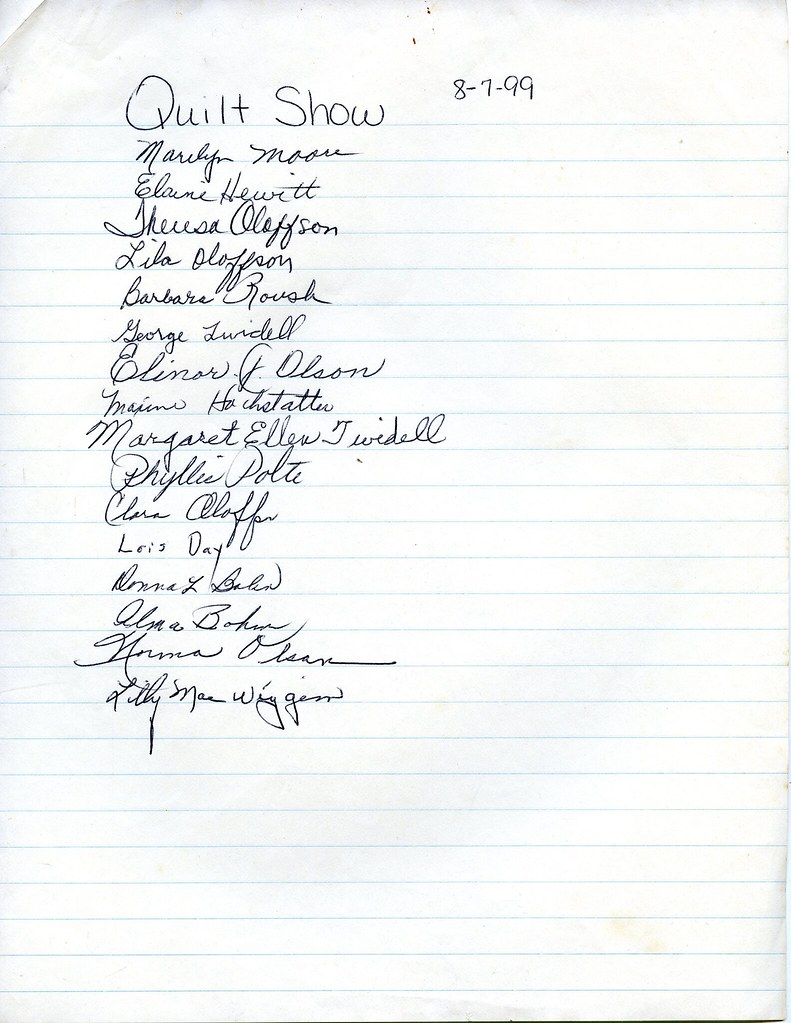 Quilt Show 8-7-99
Marilyn Moore
Elaine Hewitt
Theresa Oloffson
Lila Oloffson
Barbara Roush
George Twidell
Elinor J. Olson
Maxine Hochstatter
Margaret Ellen Twidell
Phyllis Polte
Clara
Lois Day
Donna L
Alma Bohm
Norma Olson
Lilly Mae Wiggens